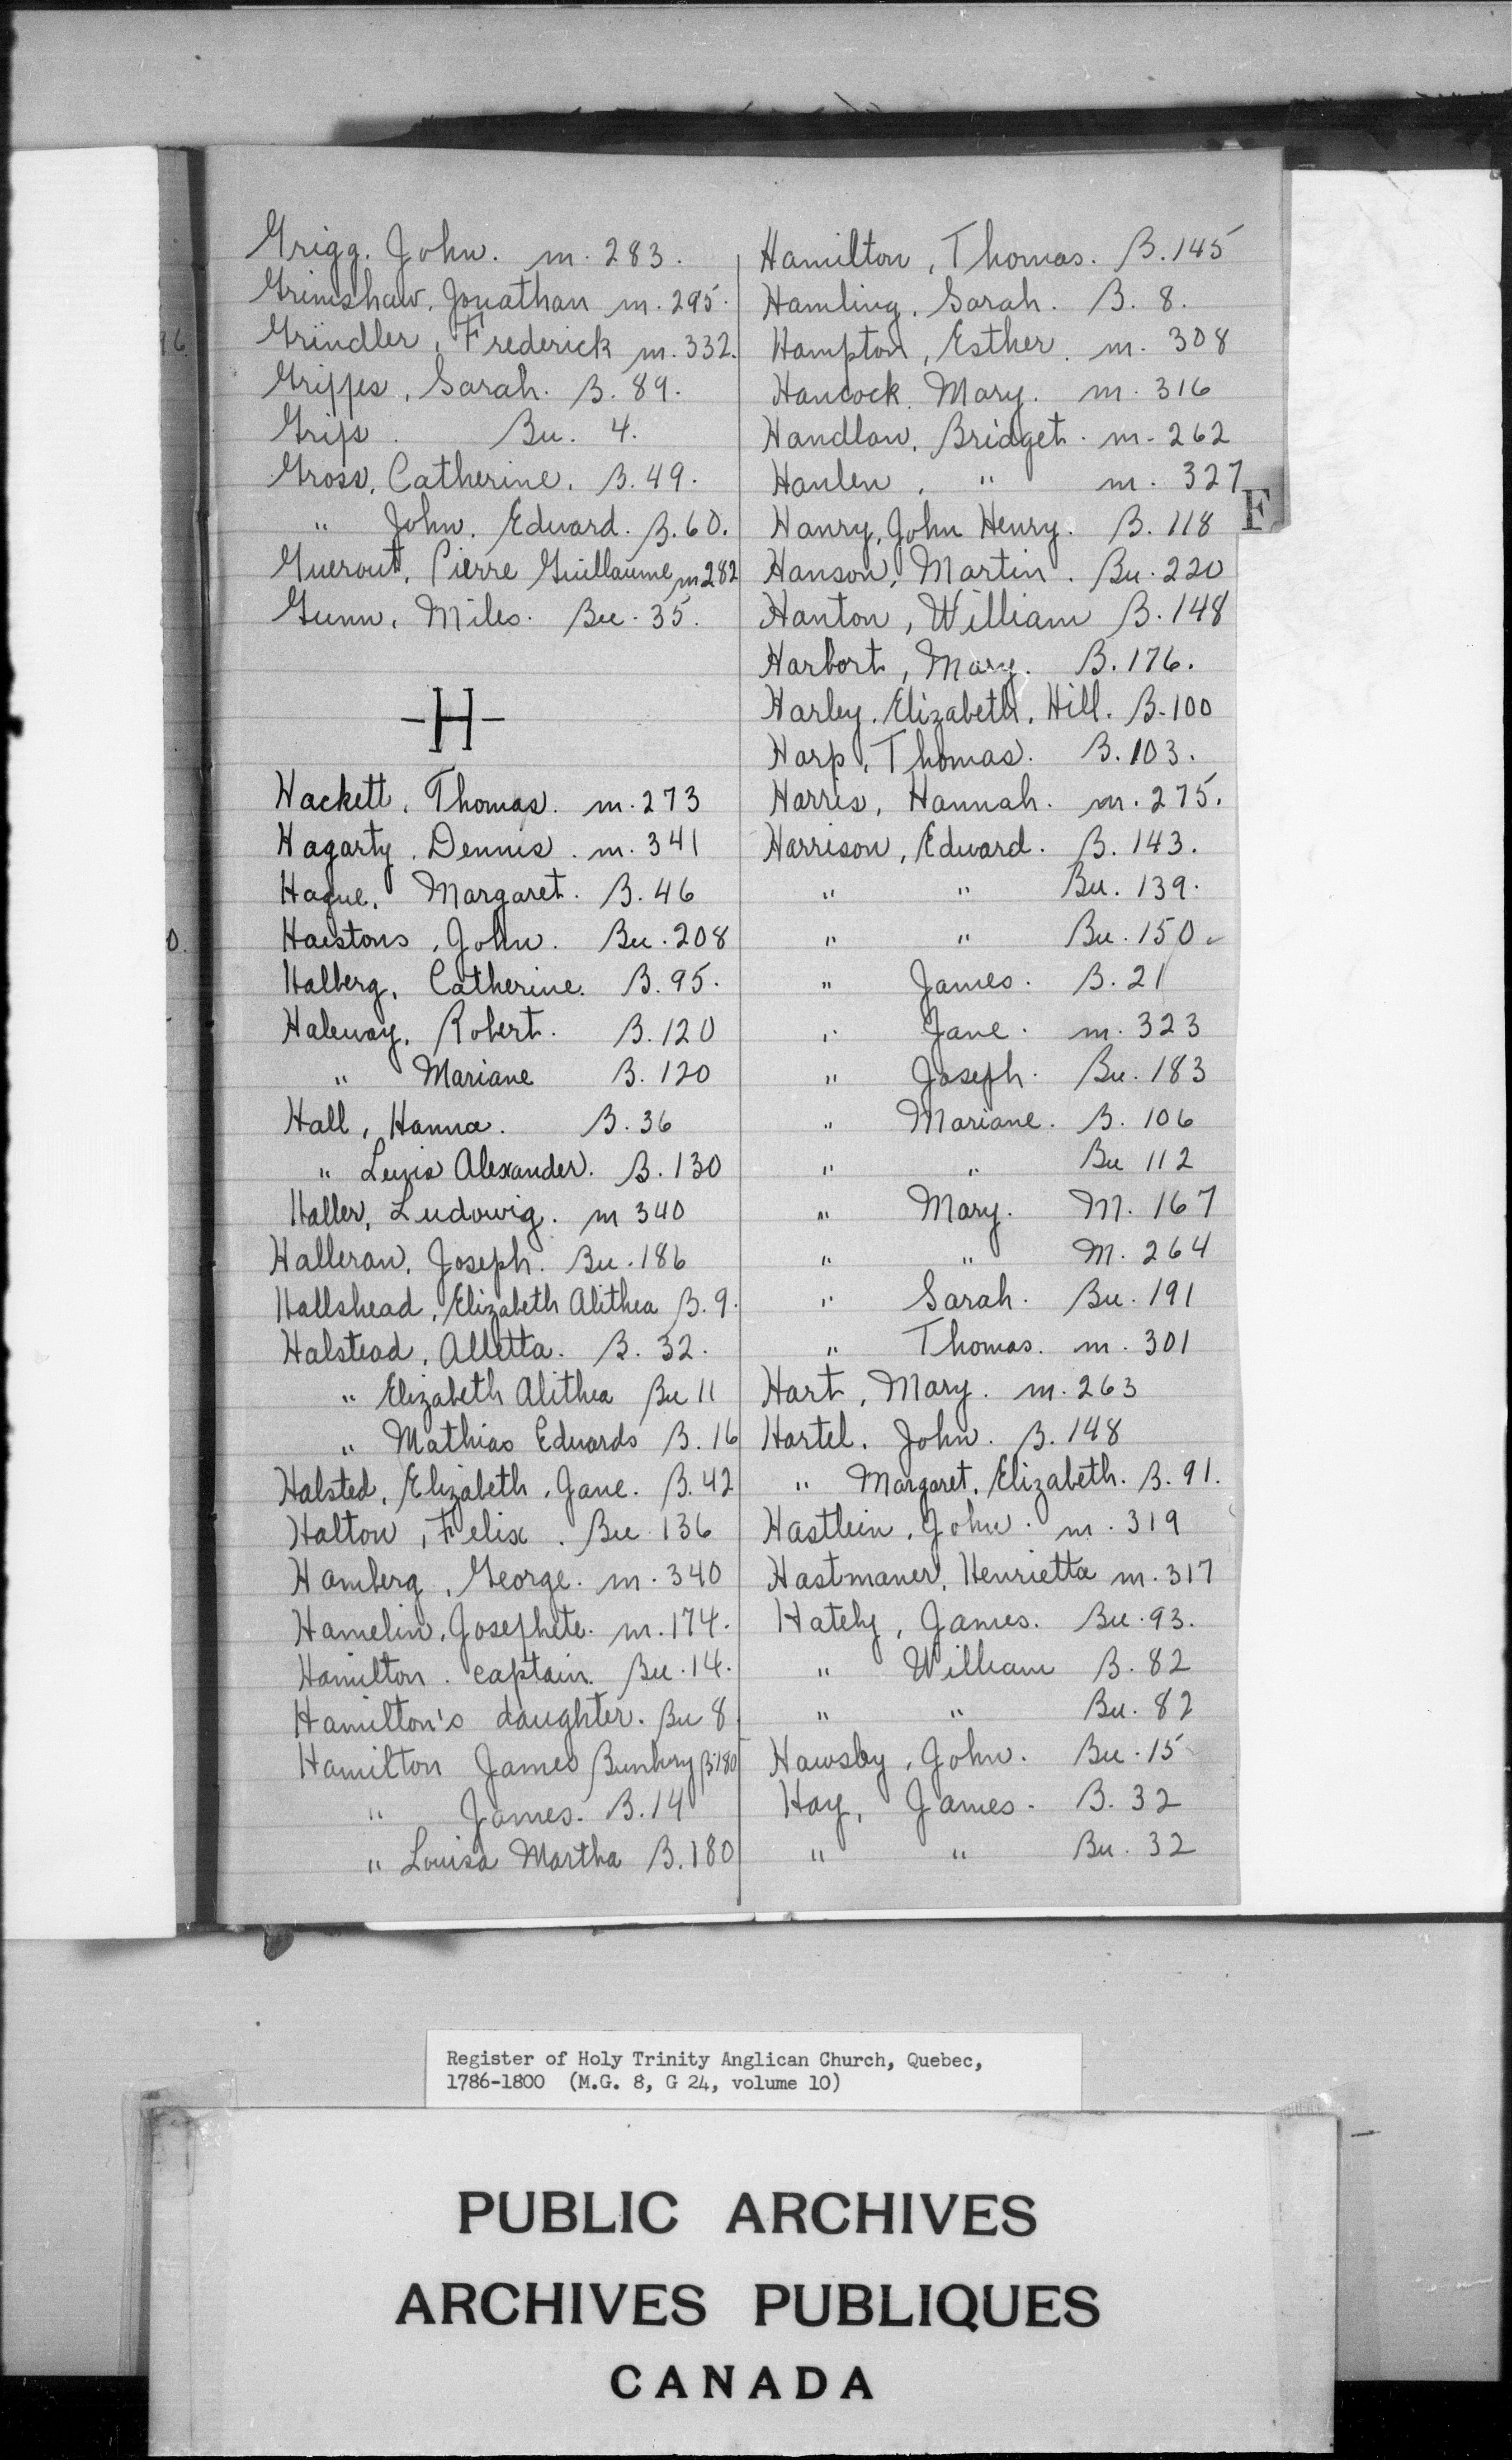 Grigg. John. m. 283.
Grimshaw. Jonathan m. 295.
Grindler, Frederick m. 332.
Grippes, Sarah. B. 89.
Grips. Bu. 4.
Gross, Catherine. B. 49.
" John. Edward. B. 60.
Guerout, Pierre Guillaume m 282
Gunn, Miles. Bu. 35.
-H-
Hackett, Thomas. m. 273
Hagarty. Dennis. m. 341
Hague. Margaret. B. 46
Haistons, John. Bu. 208
Halberg, Catherine. B. 95.
Haleway, Robert. B. 120
" Mariane B. 120
Hall, Hanna. B. 36
" Lewis Alexander. B. 130
Haller, Ludowig. m 340
Halleran, Joseph. Bu. 186
Hallshead, Elizabeth Alithea B. 9.
Halstead, Alletta. B. 32.
" Elizabeth Alithea Bu 11
" Mathias Edwards B. 16
Halsted, Elizabeth, Jane. B. 42
Halton, Felix. Bu 136
Hamberg, George. m. 340
Hamelin, Josephete. m. 174.
Hamilton. captain. Bu. 14.
Hamilton's daughter. Bu 8
Hamilton James Bunbury B. 180
" James. B. 14
" Louisa Martha B. 180
Hamilton, Thomas. B. 145
Hamling, Sarah. B. 8.
Hampton, Esther. m. 308
Hancock. Mary. m. 316
Handlan, Bridget. m. 262
Hanlen, " m. 327
Hanry, John Henry. B. 118
Hanson, Martin. Bu. 220
Hanton, William B. 148
Harbort, Mary. B. 176.
Harley. Elizabeth, Hill. B. 100
Harp, Thomas. B. 103.
Harris, Hannah. m. 275.
Harrison, Edward. B. 143.
" " Bu. 139.
" " Bu. 150
" James. B. 21
" Jane. m. 323
" Joseph. Bu. 183
" Mariane. B. 106
" " Bu 112
" Mary. M. 167
" " M. 264
" Sarah. Bu. 191
" Thomas. m. 301
Hart, Mary. m. 263
Hartel. John. B. 148
" Margaret, Elizabeth. B. 91.
Hastlein, John. m. 319
Hastmaner, Henrietta m. 317
Hately, James. Bu. 93.
" William B. 82
" " Bu. 82
Hawsby, John. Bu. 15
Hay, James. B. 32
" " Bu. 32
F
Register of Holy Trinity Anglican Church, Quebec,
1786-1800 (M.G. 8, G 24, volume 10)
PUBLIC ARCHIVES
ARCHIVES PUBLIQUES
CANADA